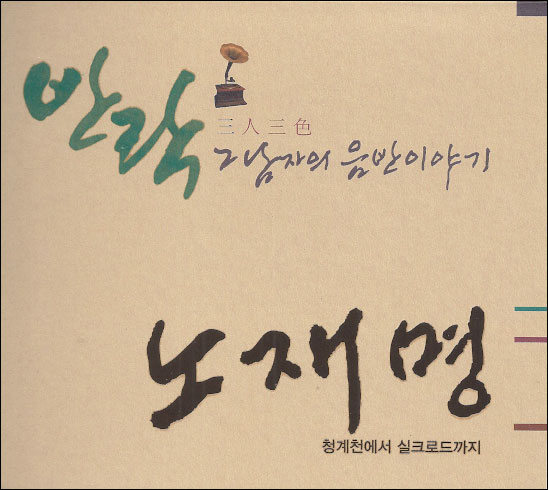 반락
三人三色
그남자의 음반이야기
노재명
청계천에서 실크로드까지